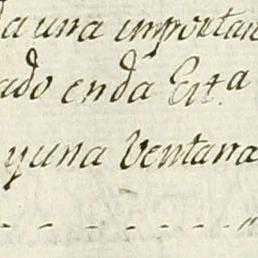 da una importan
ado en da Est.a
y una Ventana
- - - - - - - "